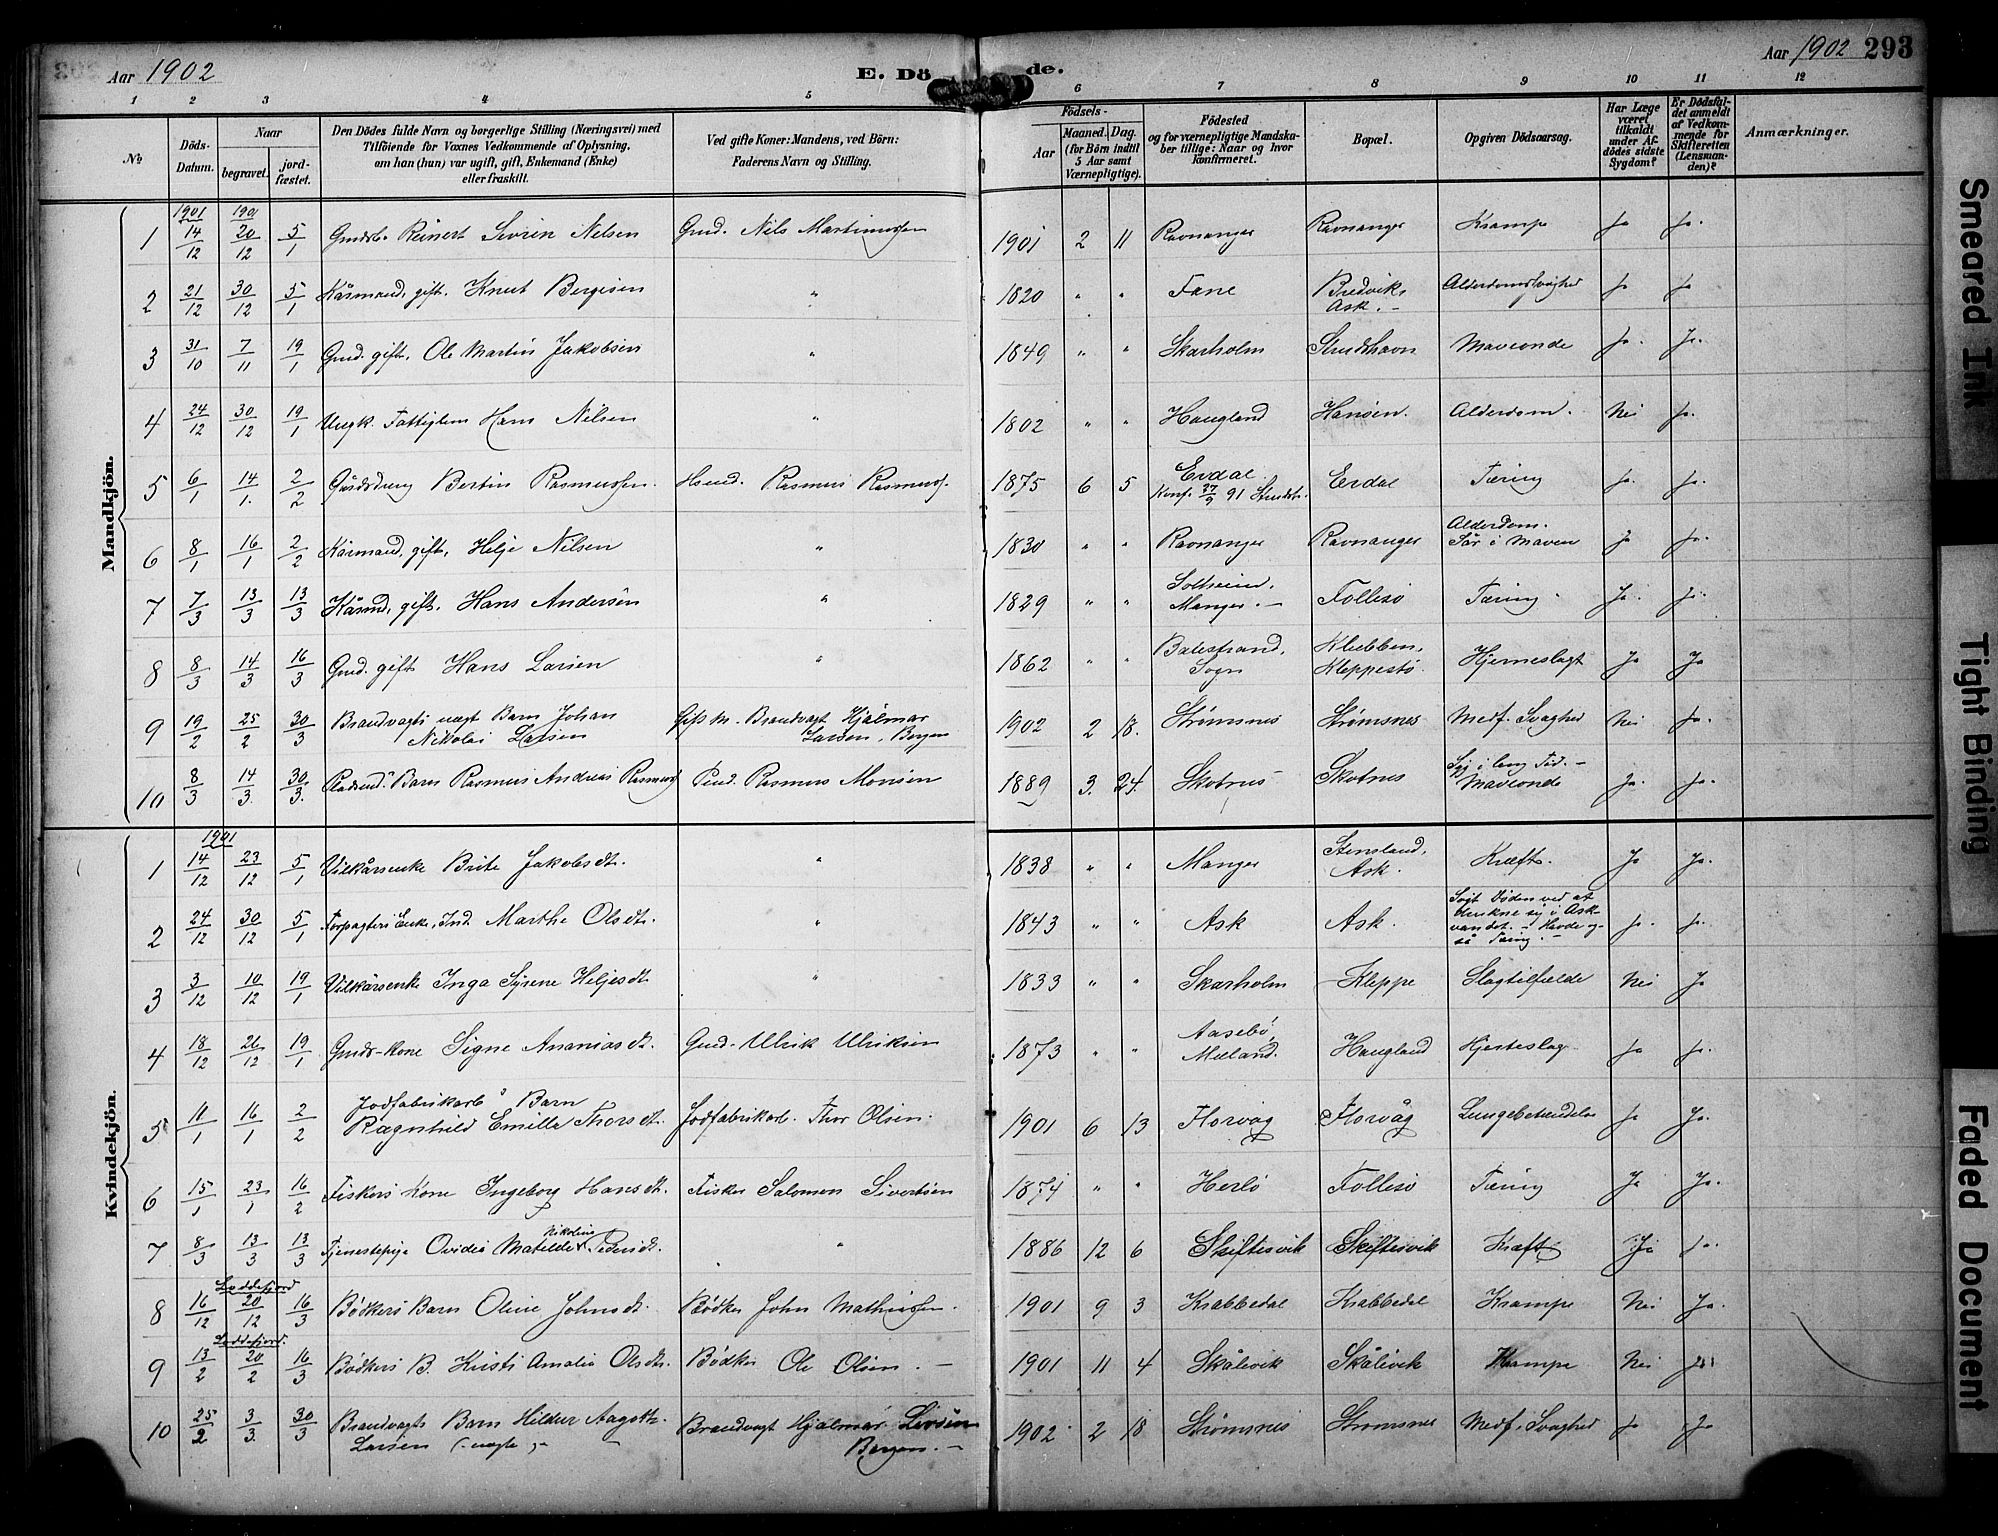 Aar 1902
E. Dö de.
Aar 1902 293
1 2 3 4 5 6 7 8 9 10 11 12
No
Döds-Datum.
Naar
begravet.
jordfæstet.
Den Dödes fulde Navn og borgerlige Stilling (Næringsvei) med
Tilföiende for Voxnes Vedkommende af Oplysning,
om han (hun) var ugift, gift, Enkemand (Enke)
eller fraskilt.
Ved gifte Koner: Mandens, ved Börn:
Faderens Navn og Stilling.
Födsels-
Aar
Maaned. Dag.
(for Börn indtil
5 Aar samt
Værnepligtige).
Födested
og for værnepligtige Mandskaber tillige: Naar og hvor
konfirmeret.
Bopæl.
Opgiven Dödsaarsag.
Har Læge
været
tilkaldt
under Afdödes sidste
Sygdom?
Er Dödsfaldet anmeldt
af Vedkommende for
Skifteretten
(Lensmanden)?
Anmærkninger.
Mandkjön.
1901 1901
1 14/12 20/12 5/1 Gmdsb. Reinert Sivren Nelsen Gmd. Nils Martinussen 1901 2 11 Ravnanger Ravnanger Krampe Ja Ja.
2 21/12 30/12 5/1 Kårmand, gift, Knut Bergesen " 1820 " " Fane Bredvik, Ask. Alderdomssvaghed Ja Ja
3 31/10 7/11 19/1 Gmd. gift, Ole Martin Jakobsen " 1849 " " Skarholm Strudshavn Mavronde Ja. Ja.
4 24/12 30/12 19/1 Ungk. Fattiglem Hans Nilsen " 1802 " " Haugland Hansen. Alderdom. Nei Ja.
5 6/1 14/1. 2/2 Gårdsdreng Bertin Rasmussen. Hsmd. Rasmus Rasmuss. 1875 6 5 Erdal Konf. 27/9 91 Strudsh. Erdal Tæring Ja. Ja.
6 8/1 16/1 2/2 Kårmand, gift, Helje Nilsen " 1830 " " Ravnanger Ravnanger Alderdom. Sår i Maven Ja Ja.
7 7/3 13/3 13/3 Kårmd, gift, Hans Andersen " 1829 " " Solheim, Manger. Follesø Tæring Ja. Ja.
8 8/3 14/3 16/3 Gmd. gift Hans Larsen " 1862 " " Balestrand, Sogn Klubben, Kleppestø. Hjerneslagt Ja Ja
9 19/2 25/2 30/3 Brandvagts uægt Barn Johan Nikolai Larsen Gift M. Brandvagt Hjalmar Larsen, Bergen 1902 2 18. Strømsnes Strømsnes Medf. Svaghed Nei Ja.
10 8/3 14/3. 30/3. Pladsmds Barn Rasmus Andreas Rasmuss Pmd. Rasmus Monsen 1889 3. 24. Skotnes Skotnes Syg i lang Tid. Mavronde Ja. Ja.
Kvindekjön.
1901
1 14/12 23/12 5/1 Vilkårsenke Brite Jakobsdt. " 1838 " " Manger Stensland, Ask. Kræft. Ja Ja.
2 24/12 30/12 5/1 Forpagters Enke, Ind. Marthe Olsdt. " 1843 " " Ask Ask. Søgt Døden ved at drukne sig i Askvandet. Havde også Tæring. Ja. Ja.
3 3/12 10/12 19/1 Vilkårsenke Inga Syrene Heljesdt " 1833 " " Skarholm Kleppe Slagtilfælde Nei Ja
4 18/12 26/12 19/1 Gmds-Kone Signe Ananiasdt. Gmd. Ulrik Ulriksen 1873 " " Aasebø, Mæland. Haugland Hjerteslag. Ja Ja.
5 11/1 16/1 2/2 Jodfabrikarb.s Barn Ragnhild Emilie Thorsdt. Jodfabrikarb. Thor Olsen. 1901 6 13 Florvåg Florvåg Lungebetændelse Ja Ja.
6 15/1 23/1 16/2 Fiskers Kone Ingeborg Hansdt. Fisker Salomon Sivertsen 1874 " " Herlø Follesø Tæring Ja Ja.
7 8/3 13/3 13/3 Tjenestepige Ovidia Matilde Nikoline Pedersdt. " 1886 12 6 Skiftesvik Skiftesvik Kræft Ja Ja.
8 16/12 Loddefjord 20/12 16/3 Bødkers Barn Oline Johnsdt. Bødker John Mathiessen. 1901 9 3 Krabbedal Krabbedal Krampe Nei Ja.
9 13/2 Loddefjord. 20/2 16/3 Bødkers B. Kristi Amalie Olsdt. Bødker Ole Olsen. 1901 11 4 Skålevik Skålevik Krampe Nei Ja
10 25/2 3/3. 30/3 Brandvagts Barn Hildur Aagoth. Larsen (uægte) Brandvagt Hjalmar Larsen Bergen. 1902. 2 18 Strømsnes Strømsnes Medf. Svaghed Ja Ja
Smeared Ink
Tight Binding
Faded Document